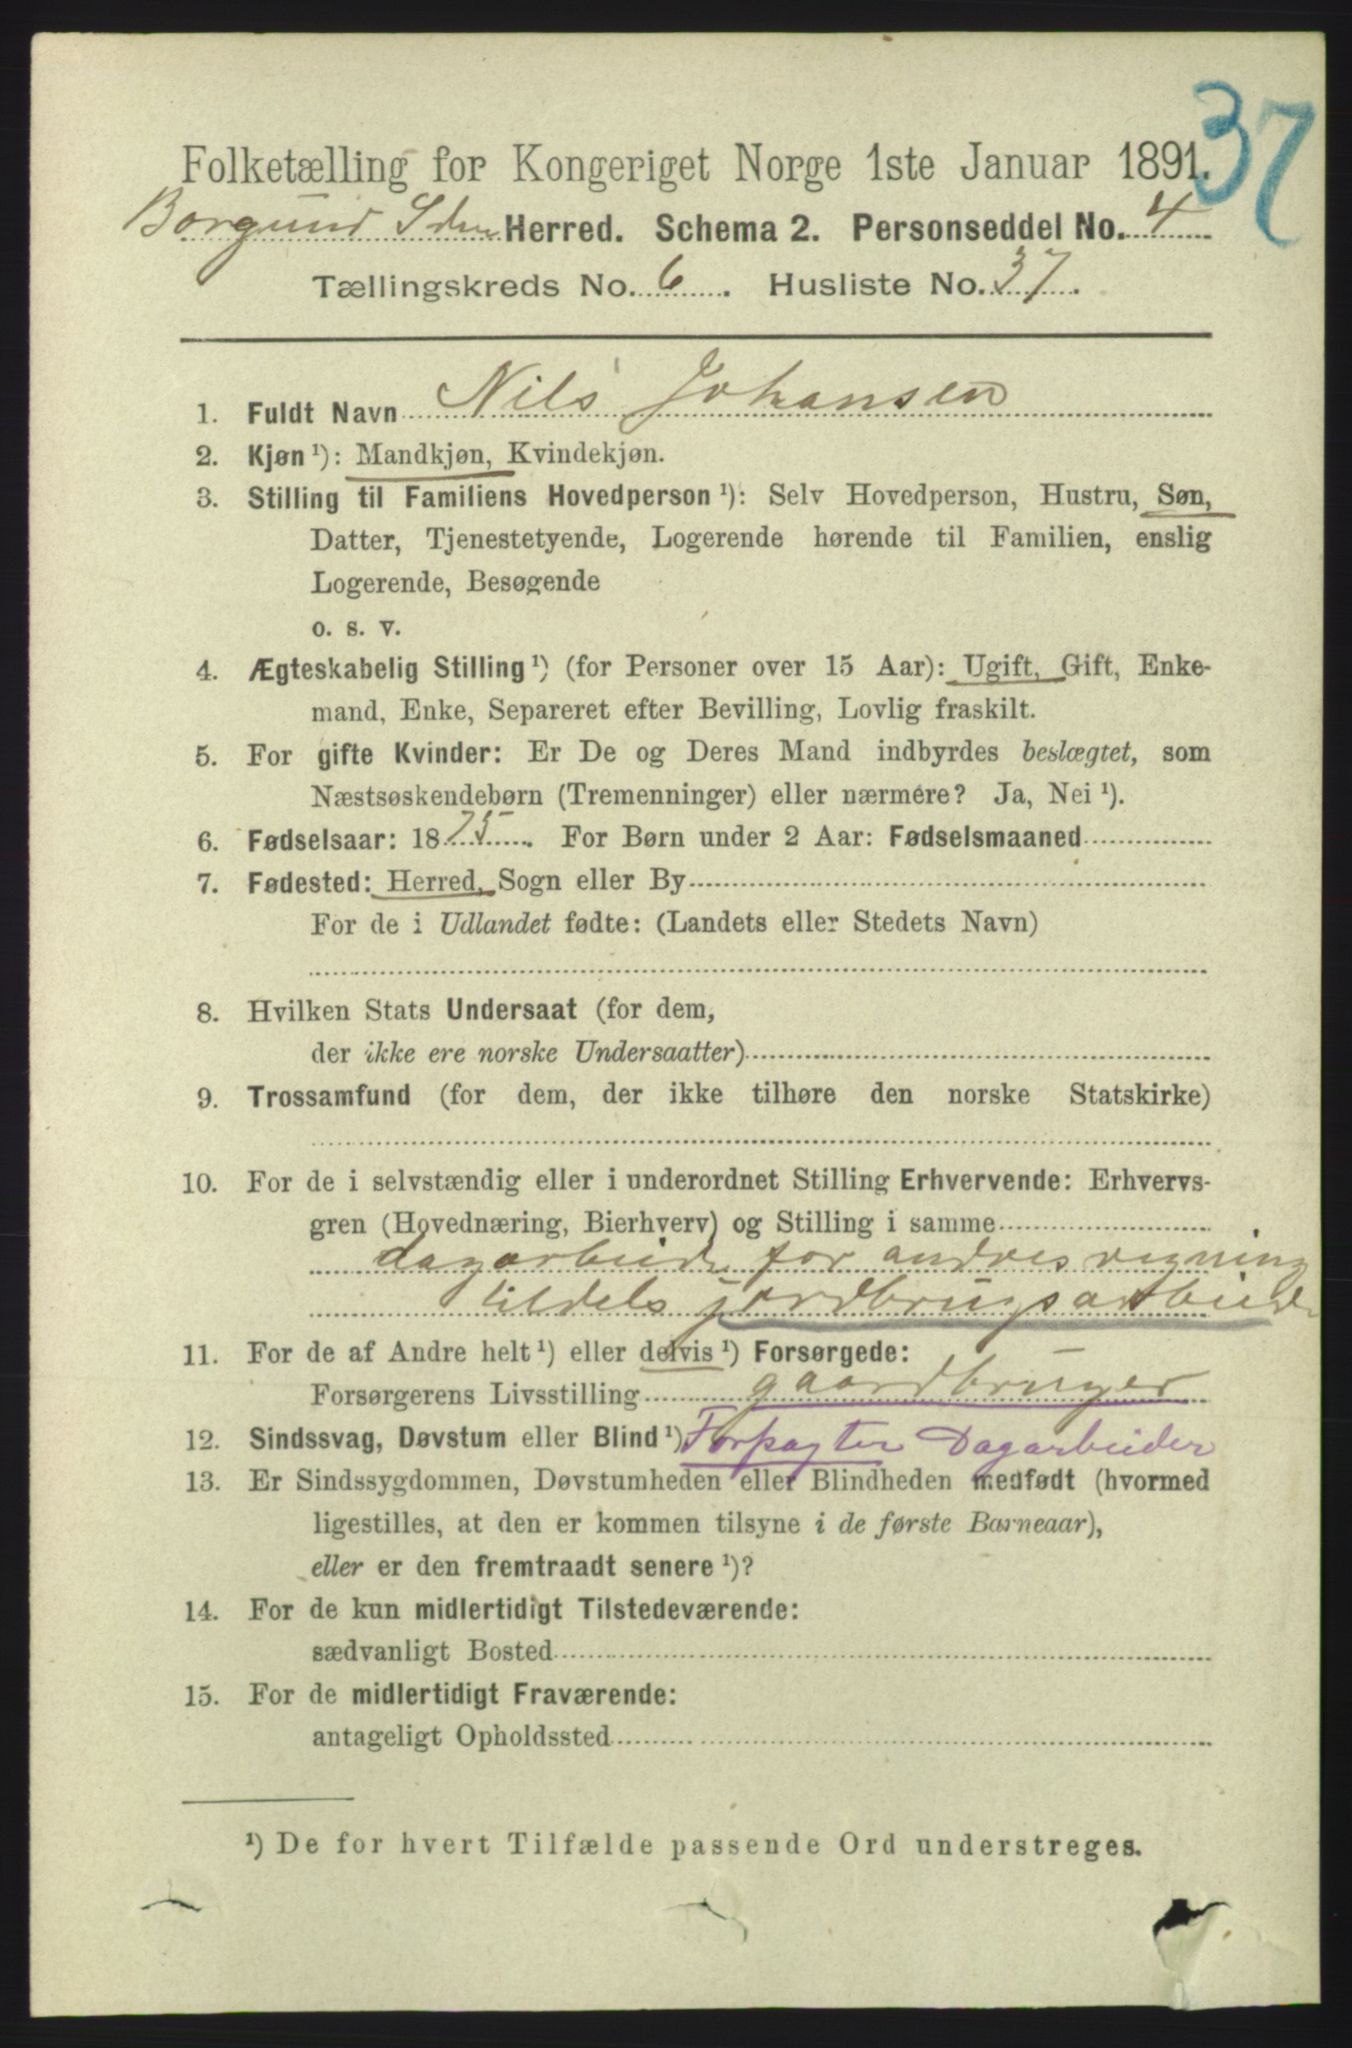 37
Folketælling for Kongeriget Norge 1ste Januar 1891.
Borgund Herred. Schema 2. Personseddel No. 4
Tællingskreds No. 6. Husliste No. 37.
1. Fuldt Navn Nils Johansen
2. Kjøn ¹): Mandkjøn, Kvindekjøn.
3. Stilling til Familiens Hovedperson ¹): Selv Hovedperson, Hustru, Søn,
Datter, Tjenestetyende, Logerende hørende til Familien, enslig
Logerende, Besøgende
o. s. v.
4. Ægteskabelig Stilling ¹) (for Personer over 15 Aar): Ugift, Gift, Enke-
mand, Enke, Separeret efter Bevilling, Lovlig fraskilt.
5. For gifte Kvinder: Er De og Deres Mand indbyrdes beslægtet, som
Næstsøskendebørn (Tremenninger) eller nærmere? Ja, Nei ¹).
6. Fødselsaar: 1875. For Børn under 2 Aar: Fødselsmaaned
7. Fødested: Herred, Sogn eller By
For de i Udlandet fødte: (Landets eller Stedets Navn)
8. Hvilken Stats Undersaat (for dem,
der ikke ere norske Undersaatter)
9. Trossamfund (for dem, der ikke tilhøre den norske Statskirke)
10. For de i selvstændig eller i underordnet Stilling Erhvervende: Erhvervs-
gren (Hovednæring, Bierhverv) og Stilling i samme
dagarbeide for andres regning
tildels jordbrugsarbeide
11. For de af Andre helt ¹) eller delvis ¹) Forsørgede:
Forsørgerens Livsstilling gaardbruger
12. Sindssvag, Døvstum eller Blind ¹) Forpagter Dagarbeider
13. Er Sindssygdommen, Døvstumheden eller Blindheden medfødt (hvormed
ligestilles, at den er kommen tilsyne i de første Barneaar),
eller er den fremtraadt senere ¹)?
14. For de kun midlertidigt Tilstedeværende:
sædvanligt Bosted
15. For de midlertidigt Fraværende:
antageligt Opholdssted
¹) De for hvert Tilfælde passende Ord understreges.